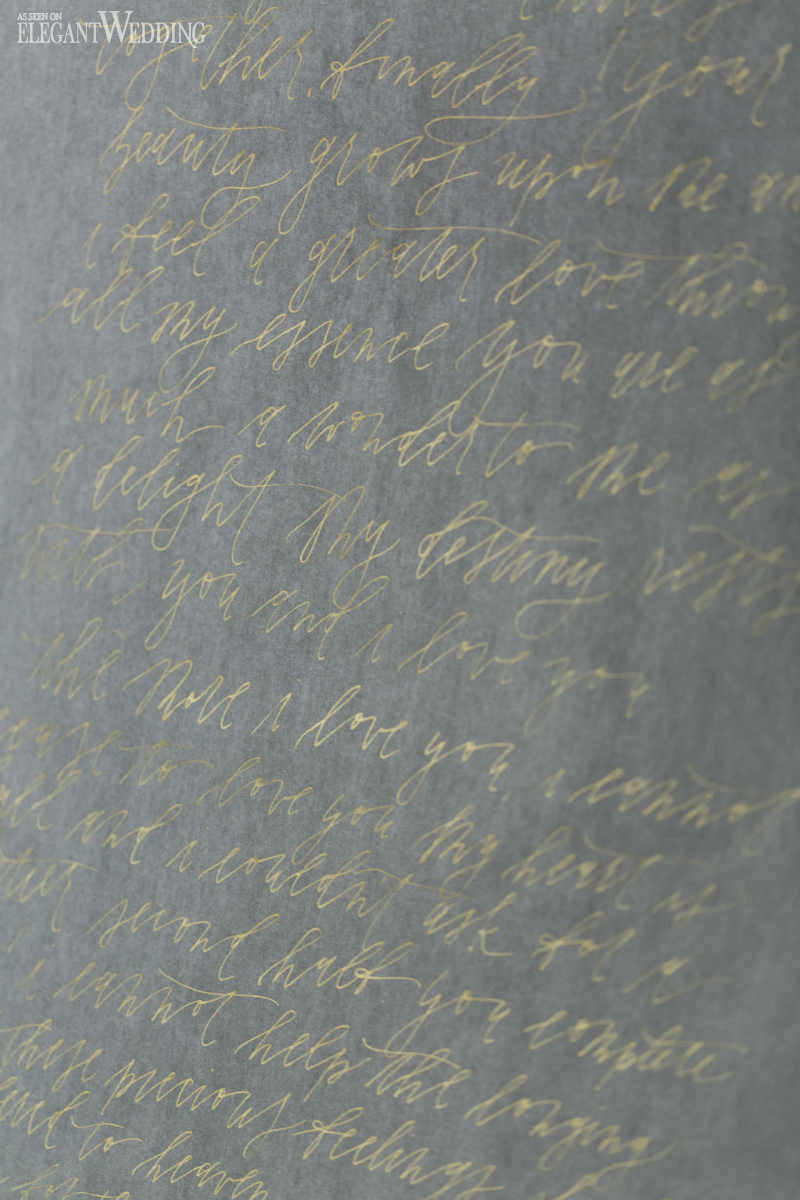 AS SEEN ON
ELEGANTWEDDING
together. finally your
beauty grows upon me an
i feel a greater love throu
all my essence you are as
much a wonder to me as
a delight my destiny rests
with you and i love you
the more i love you i cannot
cease to love you my heart is
all and i couldnt ask for a
tter second half you complete
i cannot help the longing
these precious feelings
to heaven